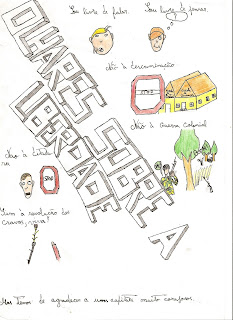 Sou livre de falar.
Sou livre de pensar.
Não à descriminação
Não à Guerra Colonial
OLHARES
SOBRE
A
LIBERDADE
Sim à revolução dos
cravos, viva!
Mas temos de agradecer a um capitão muito corajoso.